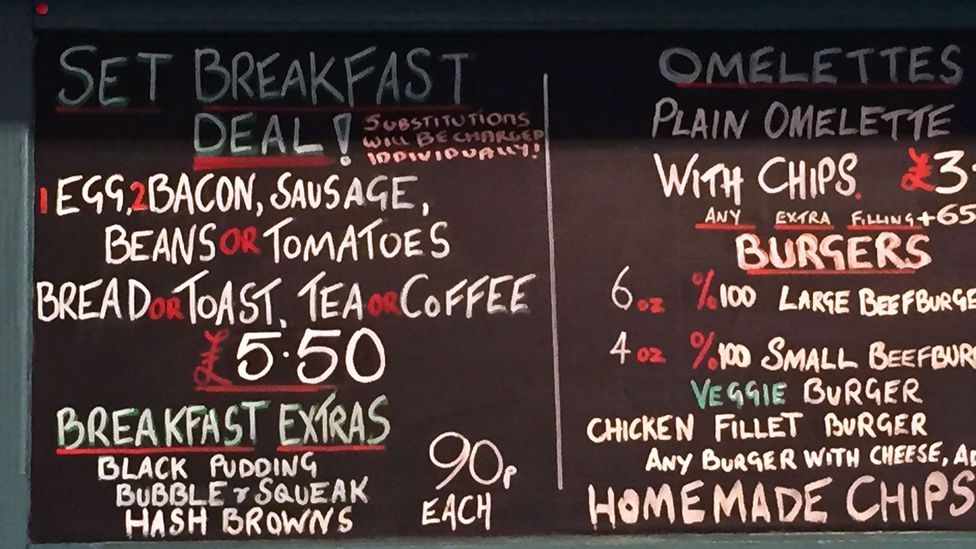 SET BREAKFAST
DEAL!
SUBSTITUTIONS
WILL BE CHARGED
INDIVIDUALLY!
1 EGG, 2 BACON, SAUSAGE,
BEANS OR TOMATOES
BREAD OR TOAST, TEA OR COFFEE
£5.50
BREAKFAST EXTRAS
BLACK PUDDING
BUBBLE & SQUEAK
HASH BROWNS
90p
EACH
OMELETTES
PLAIN OMELETTE
WITH CHIPS £3.
ANY EXTRA FILLING +65
BURGERS
6 oz %100 LARGE BEEFBURGE
4 oz %100 SMALL BEEFBUR
VEGGIE BURGER
CHICKEN FILLET BURGER
ANY BURGER WITH CHEESE, AD
HOMEMADE CHIPS